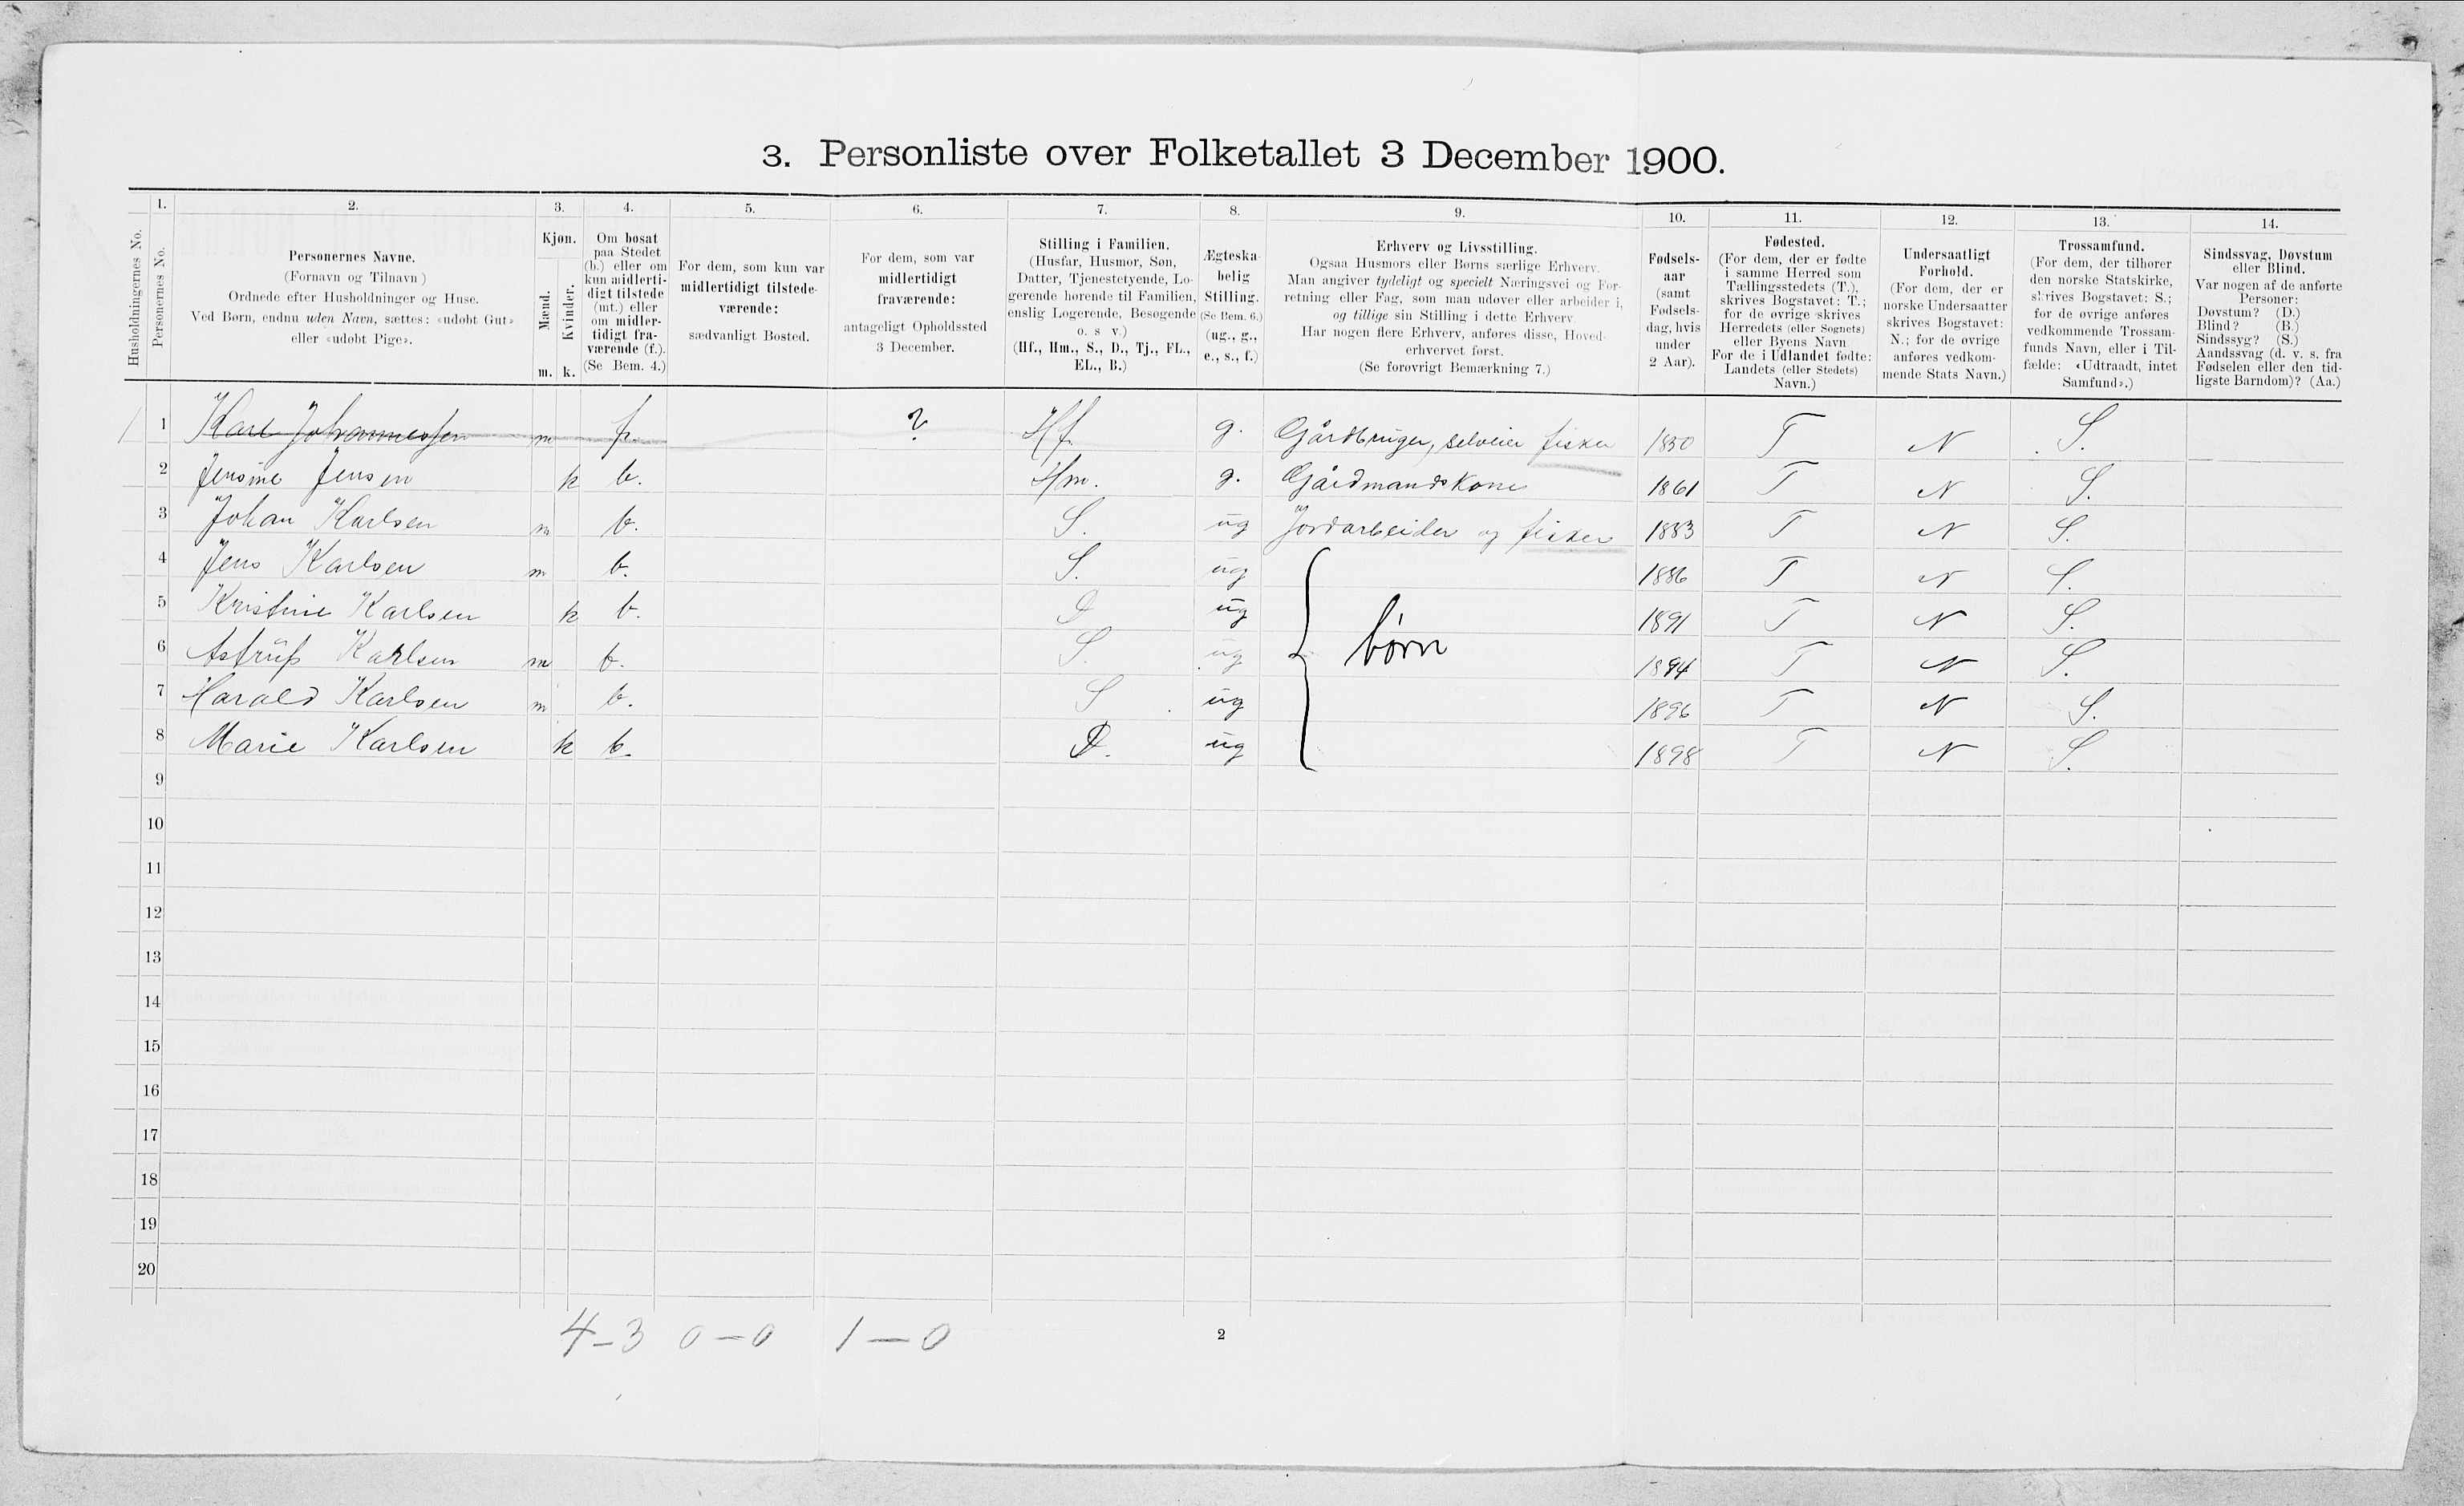 3. Personliste over Folketallet 3 December 1900.
1. 2. 3. 4. 5. 6. 7. 8. 9. 10. 11. 12. 13. 14.
Husholdningernes No.
Personernes No.
Personernes Navne.
(Fornavn og Tilnavn)
Ordnede efter Husholdninger og Huse.
Ved Børn, endnu uden Navn, sættes: «udøbt Gut»
eller «udøbt Pige».
Kjøn.
Mænd.
Kvinder.
m. k.
Om bosat
paa Stedet
(b.) eller om
kun midlerti-
digt tilstede
(mt.) eller
om midler-
tidigt fra-
værende (f.).
(Se Bem. 4.)
For dem, som kun var
midlertidigt tilstede-
værende:
sædvanligt Bosted.
For dem, som var
midlertidigt
fraværende:
antageligt Opholdssted
3 December.
Stilling i Familien.
(Husfar, Husmor, Søn,
Datter, Tjenestetyende, Lo-
gerende hørende til Familien,
enslig Logerende, Besøgende
o. s v.)
(Hf., Hm., S., D., Tj., FL.,
EL., B.)
Ægteska-
belig
Stilling.
(Se Bem. 6.)
(ug., g.,
e., s., f.)
Erhverv og Livsstilling.
Ogsaa Husmors eller Børns særlige Erhverv.
Man angiver tydeligt og specielt Næringsvei og For-
retning eller Fag, som man udøver eller arbeider i,
og tillige sin Stilling i dette Erhverv.
Har nogen flere Erhverv, anføres disse, Hoved-
erhvervet først.
(Se forøvrigt Bemærkning 7.)
Fødsels-
aar
(samt
Fødsels-
dag, hvis
under
2 Aar).
Fødested.
(For dem, der er fødte
i samme Herred som
Tællingsstedets (T.),
skrives Bogstavet: T.;
for de øvrige skrives
Herredets (eller Sognets)
eller Byens Navn
For de i Udlandet fødte:
Landets (eller Stedets)
Navn.)
Undersaatligt
Forhold.
(For dem, der er
norske Undersaatter
skrives Bogstavet:
N.; for de øvrige
anføres vedkom-
mende Stats Navn.)
Trossamfund.
(For dem, der tilhører
den norske Statskirke,
skrives Bogstavet: S.;
for de øvrige anføres
vedkommende Trossam-
funds Navn, eller i Til-
fælde: «Udtraadt, intet
Samfund».)
Sindssvag, Døvstum
eller Blind.
Var nogen af de anførte
Personer:
Døvstum? (D.)
Blind? (B.)
Sindssyg? (S.)
Aandssvag (d. v. s. fra
Fødselen eller den tid-
ligste Barndom)? (Aa.)
1 1 Karl Johannessen m f. ? Hf. g. Gårdbruger, selveier fisker 1850 T N S.
2 Jensine Jensen k b. Hm. g. Gårdmandskone 1861 T N S.
3 Johan Karlsen m b. S. ug Jordarbeider og fisker 1883 T N S.
4 Jens Karlsen m b. S. ug 1886 T N S.
5 Kristine Karlsen k b. D ug 1891 T N S.
6 Astrup Karlsen m b. S. ug børn 1894 T N S.
7 Harald Karlsen m b. S ug 1896 T N S.
8 Marie Karlsen k b. D. ug 1898 T N S.
9
10
11
12
13
14
15
16
17
18
19
20
4-3 0-0 1-0 2